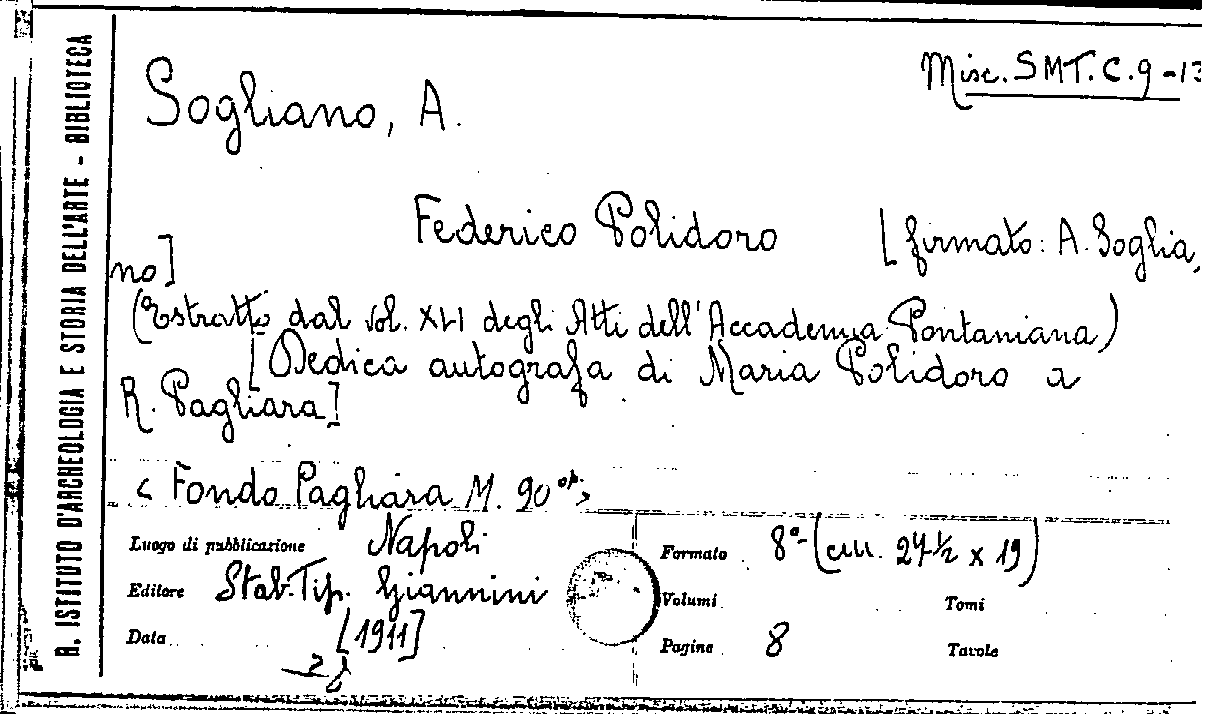 R. ISTITUTO D'ARCHEOLOGIA E STORIA DELL'ARTE - BIBLIOTECA
Misc. SMT. C. 9 - 13
Sogliano, A.
Federico Polidoro [firmato: A. Soglia,
no]
(Estratto dal vol. XLI degli Atti dell'Accademia Pontaniana)
[Dedica autografa di Maria Polidoro a
R. Pagliara]
< Fondo Pagliara M. 90 op. >
Luogo di pubblicazione Napoli
Editore Stab. Tip. Giannini
Data [1911]
Formato 8º (cm. 24 ½ x 19)
Volumi Tomi
Pagine 8 Tavole